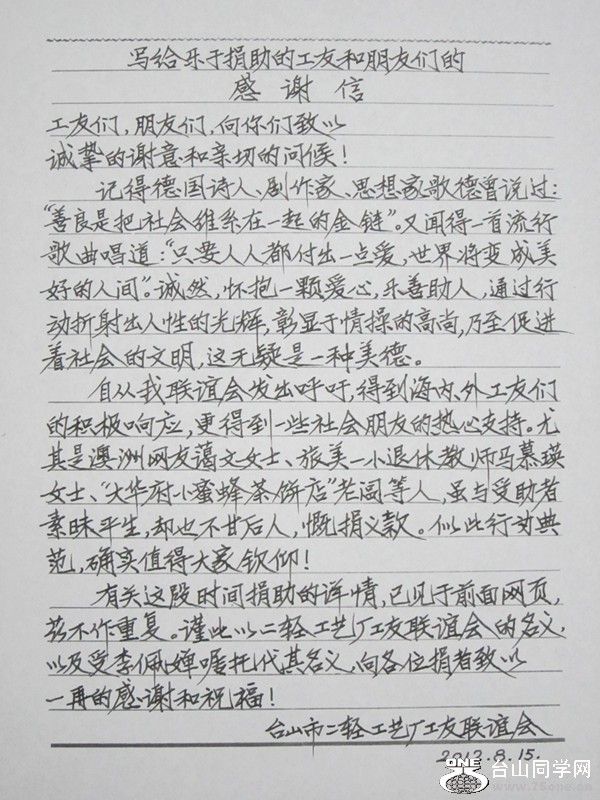 写给乐于捐助的工友和朋友们的
感谢信
工友们,朋友们,向你们致以
诚挚的谢意和亲切的问候!
记得德国诗人、剧作家、思想家歌德曾说过:
“善良是把社会维系在一起的金链”。又闻得一首流行
歌曲唱道:“只要人人都付出一点爱,世界将变成美
好的人间”。诚然,怀抱一颗爱心,乐善助人,通过行
动折射出人性的光辉,彰显于情操的高尚,乃至促进
着社会的文明,这无疑是一种美德。
自从我联谊会发出呼吁,得到海内、外工友们
的积极响应,更得到一些社会朋友的热心支持。尤
其是澳洲网友蔼文女士、旅美一小退休教师马慕瑛
女士、“大华府小蜜蜂茶饼店”老闆等人,虽与受助者
素昧平生,却也不甘后人,慨捐义款。似此行动典
范,确实值得大家钦仰!
有关这段时间捐助的详情,已见于前面网页,
兹不作重复。谨此以二轻工艺厂工友联谊会的名义,
以及受李佩婵嘱托代其名义,向各位捐者致以
一再的感谢和祝福!
台山市二轻工艺厂工友联谊会
2012.8.15.
ONE 台山同学网
www.75one.cn